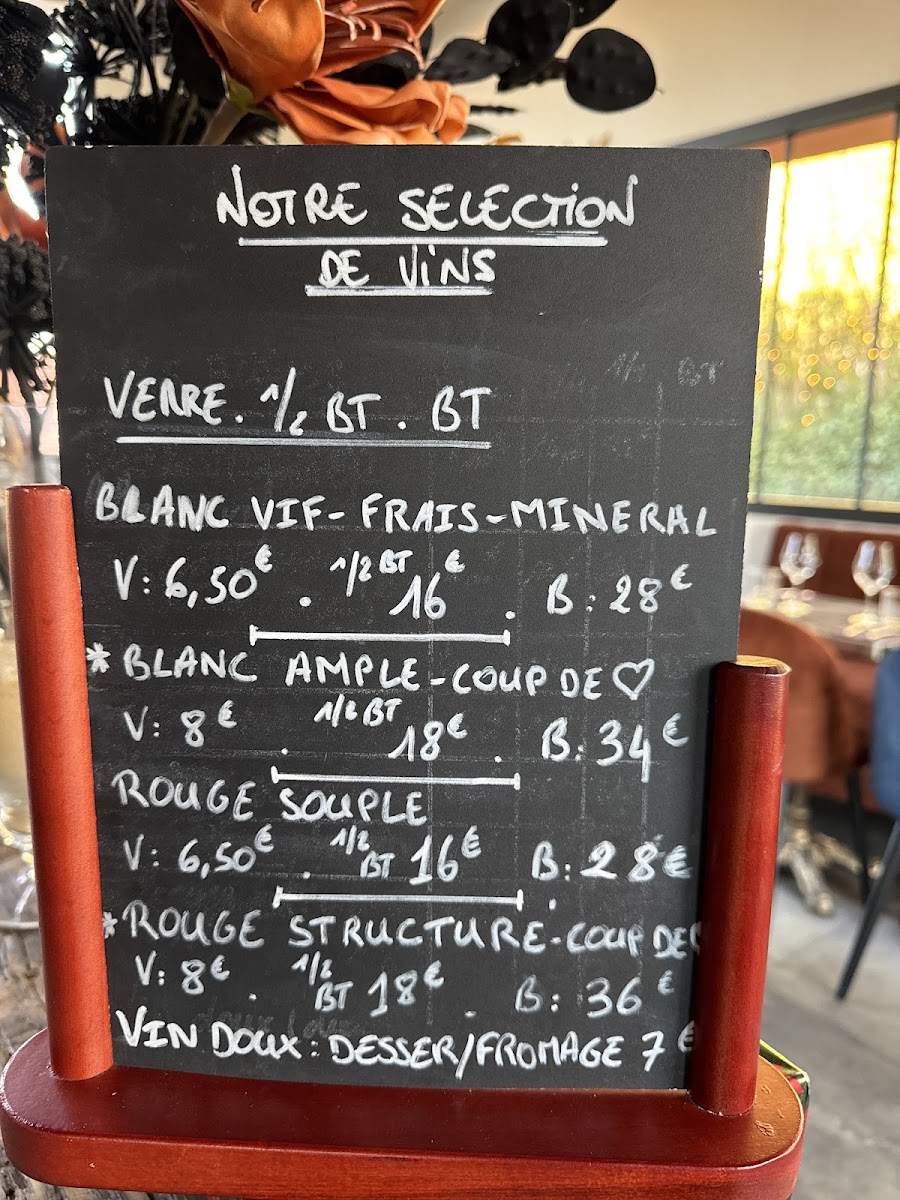 NOTRE SELECTION
DE VINS
1/2 BT
VERRE. 1/2 BT. BT
BLANC VIF-FRAIS-MINERAL
V: 6,50€ . 1/2 BT 16€ . B: 28€
* BLANC AMPLE-COUP DE ♡
V: 8€ . 1/2 BT 18€ . B: 34€
ROUGE SOUPLE
V: 6,50€ . 1/2 BT 16€ B: 28€
*ROUGE STRUCTURE-COUP DE
V: 8€ . 1/2 BT 18€ . B: 36€
VIN DOUX: DESSER/FROMAGE 7€